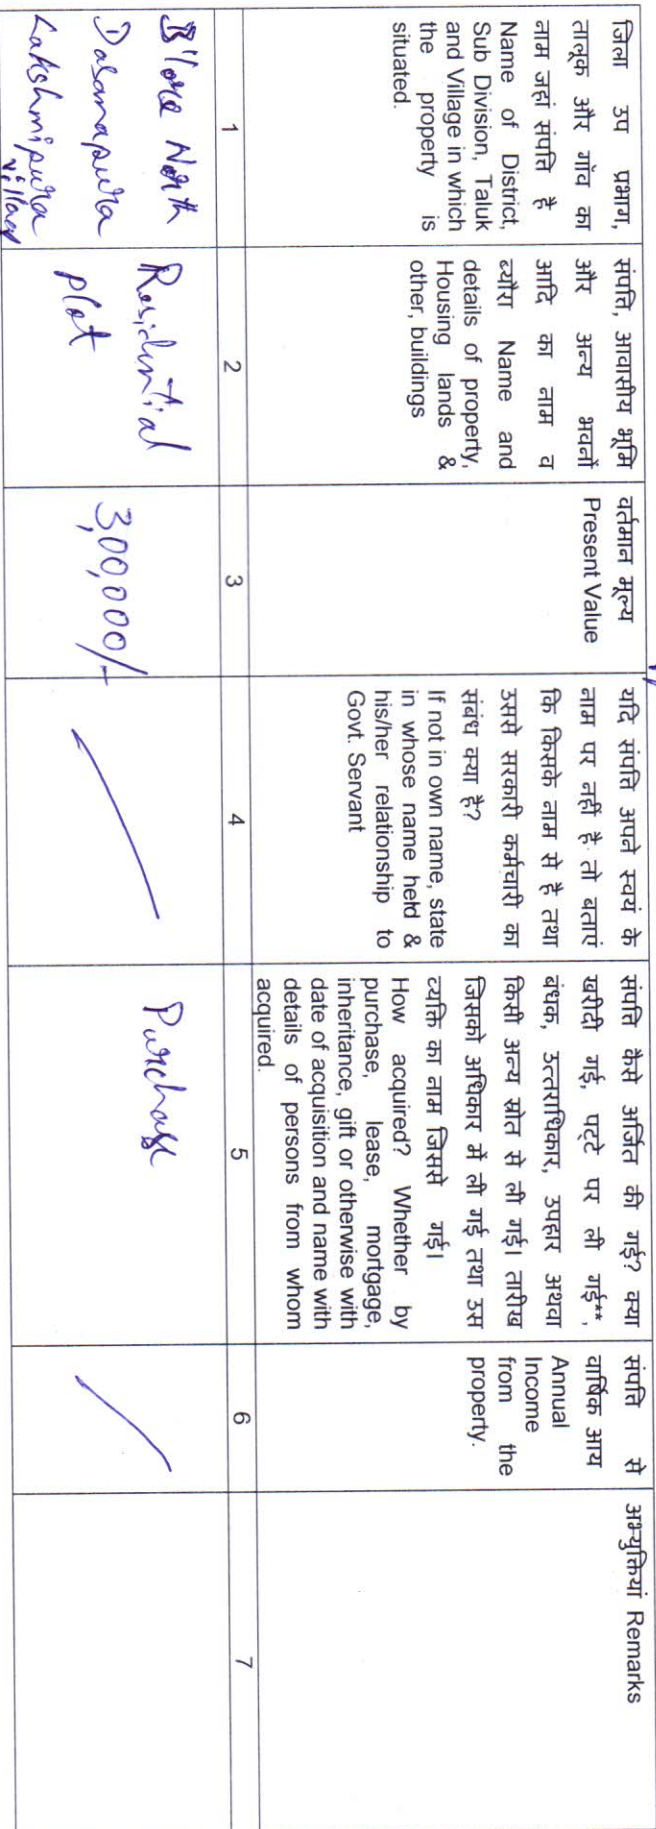 जिला उप प्रभाग,
तालूक और गाँव का
नाम जहां संपति है
Name of District,
Sub Division, Taluk
and Village in which
the property is
situated.
संपति, आवासीय भूमि
और अन्य भवनों
आदि का नाम व
ब्यौरा Name and
details of property,
Housing lands &
other, buildings
वर्तमान मूल्य
Present Value
यदि संपति अपने स्वयं के
नाम पर नहीं है तो बताएं
कि किसके नाम से है तथा
उससे सरकारी कर्मचारी का
संबंध क्या है?
If not in own name, state
in whose name held &
his/her relationship to
Govt. Servant
संपति कैसे अर्जित की गई? क्या
खरीदी गई, पट्टे पर ली गई**,
बंधक, उत्तराधिकार, उपहार अथवा
किसी अन्य स्रोत से ली गई। तारीख
जिसको अधिकार में ली गई तथा उस
व्यक्ति का नाम जिससे गई।
How acquired? Whether by
purchase, lease, mortgage,
inheritance, gift or otherwise with
date of acquisition and name with
details of persons from whom
acquired.
संपति से
वार्षिक आय
Annual
Income
from the
property.
अभ्युक्तियां Remarks
1 2 3 4 5 6 7
B'lore North
Dasanapura
Lakshmipura
village
Residential
plot
3,00,000/-
Purchase